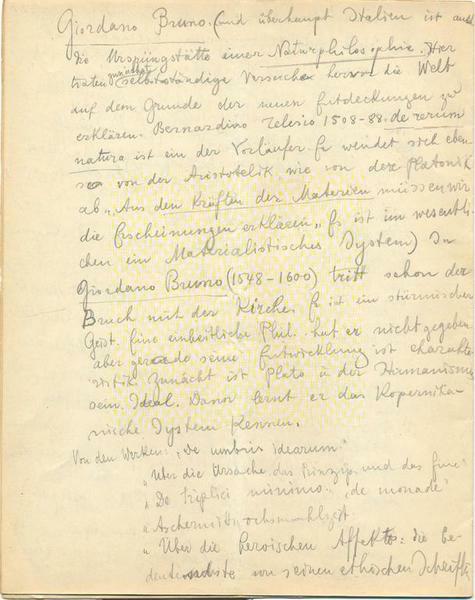 Giordano Bruno. (und überhaupt Italien ist auch
die Ursprüngstätte einer Naturphilosophie. Hier
traten zunächst selbstständige Versuche hervor die Welt
auf dem Grunde der neuen Entdeckungen zu
erklären. Bernardino Telesio 1508-88. de rerum
natura ist ein der Vorläufer. Er wendet sich eben-
so von der Aristotelik wie von der Platonik
ab „Aus den Kräften der Materien müssen wir
die Erscheinungen erklären„ Es ist im wesentli-
chen ein Materialistisches System) In
Giordano Bruno (1548-1600) tritt schon der
Bruch mit der Kirche. Er ist ein stürmischer
Geist. Eine einheitliche Phil. hat er nicht gegeben
aber gerade seine Entwicklung ist charakte-
ristik. Zunächst ist Plato u der Humanismus
sein Ideal. Davor lernt er das Kopernika-
nische System kennen.
Von den Werken: „De umbris idearum"
„Über die Ursache, das Prinzip und das Eine"
„De triplici minimo„ „de monade"
„Aschermittwochsmahlzeit
„Über die heroischen Affekte: die be-
deutendste von seinen ethischen Schrift